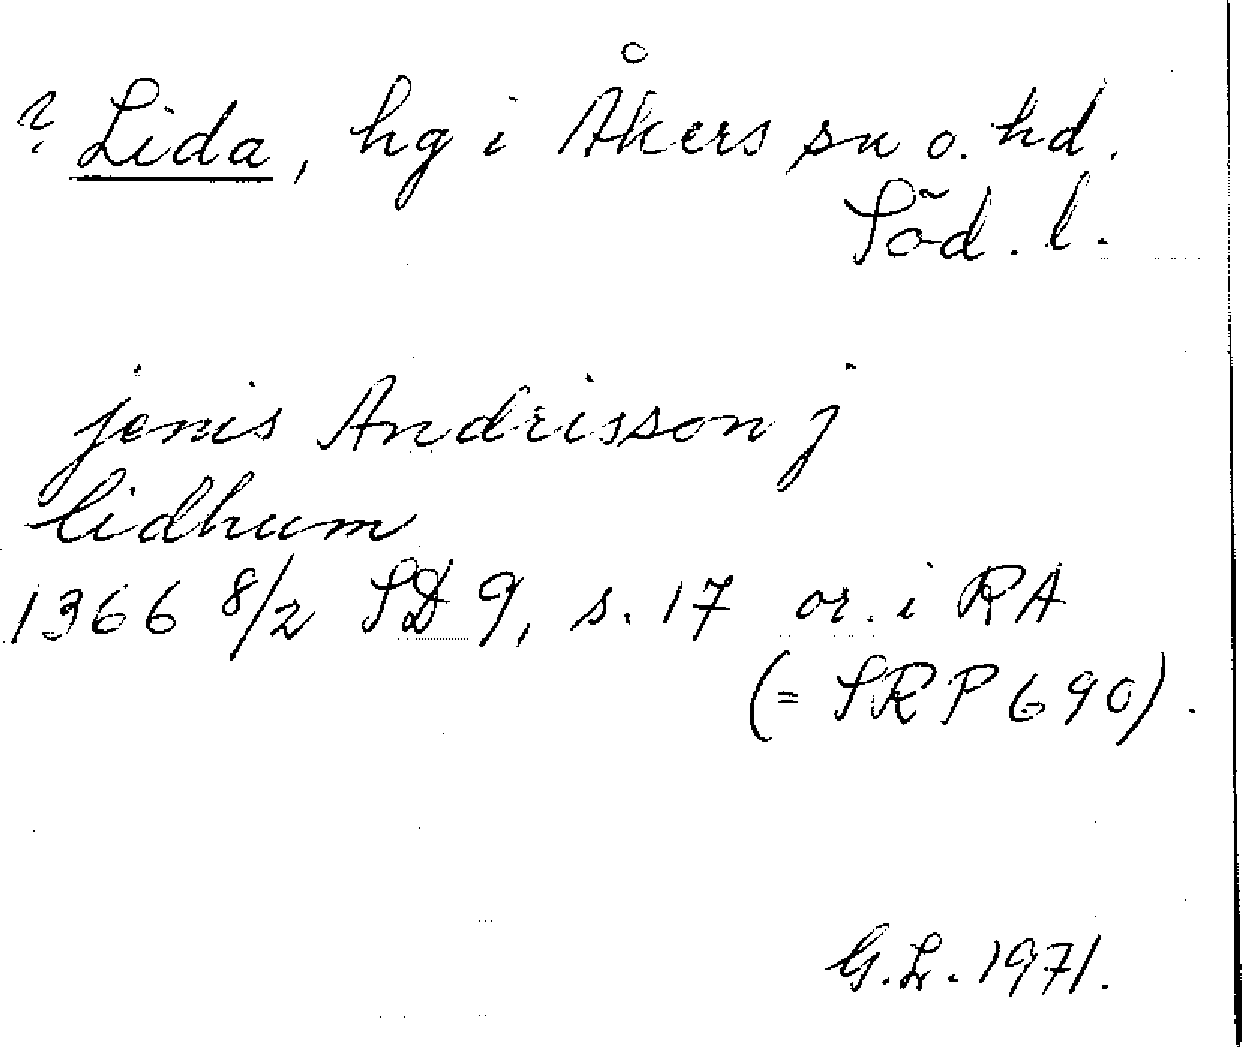 ? Lida, hg i Åkers sn o. hd.
Söd. l.
jenis Andrisson j
lidhum
1366 8/2 SD 9, s. 17 or. i RA
(= SRP 690).
G.L. 1971.